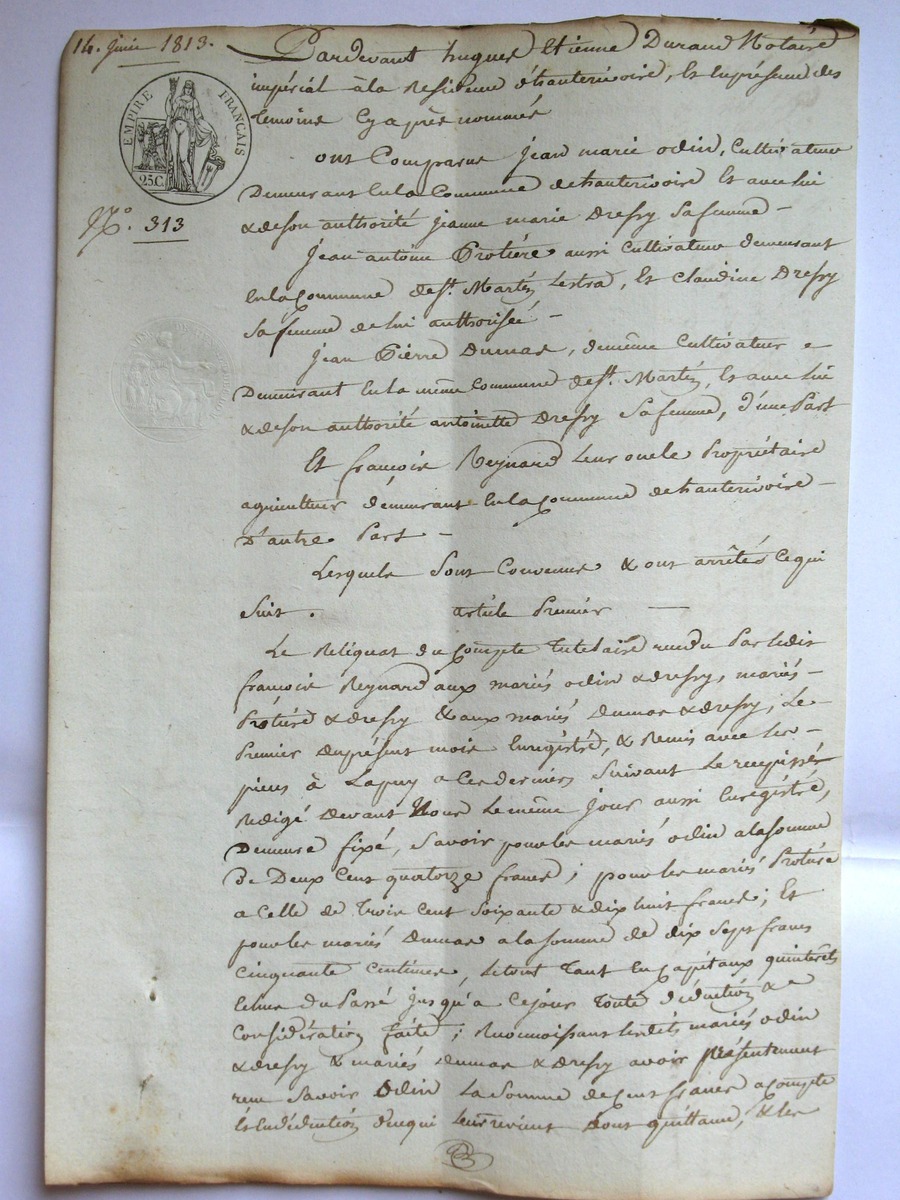 14. juin 1813.
EMPIRE FRANÇAIS
25C.
N.° 313
Pardevant hugues Etienne Durand Notaire
impérial à la Residence d'hauterivoire, Et En présence des
temoins Cy après nommés
ont Comparus jean marie odin, Cultivateur
Demeurant En la Commune de hauterivoire Et avec lui
& de son authorité jeanne marie Dressy Sa femme -
jean antoine Protière aussi Cultivateur demeurant
En la Commune de St. Martin Lestra, Et Claudine Dressy
Sa femme de lui authorisée -
jean Pierre Dumas, de même Cultivateur
Demeurant En la même Commune de St. Martin, Et avec lui
& de son authorité antoinette Dressy Sa femme, d'une Part
Et françois Reynard Leur oncle Propriétaire
agriculteur demeurant En la Commune de hauterivoire -
D'autre Part -
Lesquels Sont Convenus & ont arrêtés Ce qui
Suit. article Premier -
Le Reliquat du Compte tutelaire rendu Par ledit
françois Reynard aux mariés odin & dressy, mariés -
Protière & dressy & aux mariés Dumas & dressy, Le -
Premier du présent mois Enregistré, & Remis avec les -
pieces à Lapuy a Ces derniers Suivant Le recepissé
Redigé devant Nous Le même jour aussi Enregistré,
Demeure fixé, Savoir pour les mariés odin a la somme
De Deux Cent quatorze francs; pour les mariés Protière
a Celle de trois Cent Soixante & dix huit francs; Et
pour les mariés Dumas a la somme de dix Sept francs
Cinquante Centimes, Le tout tant En Capitaux qu'interêts
Courus du Passé jusqu'a Ce jour toute déduction &
Considération faite; Reconnoissant lesdits mariés odin
& dressy & mariés dumas & dressy avoir présentement
recu Savoir Odin La Somme de Cent francs acompte
& En déduction de ce qui Leur revient Dont quittance, & les